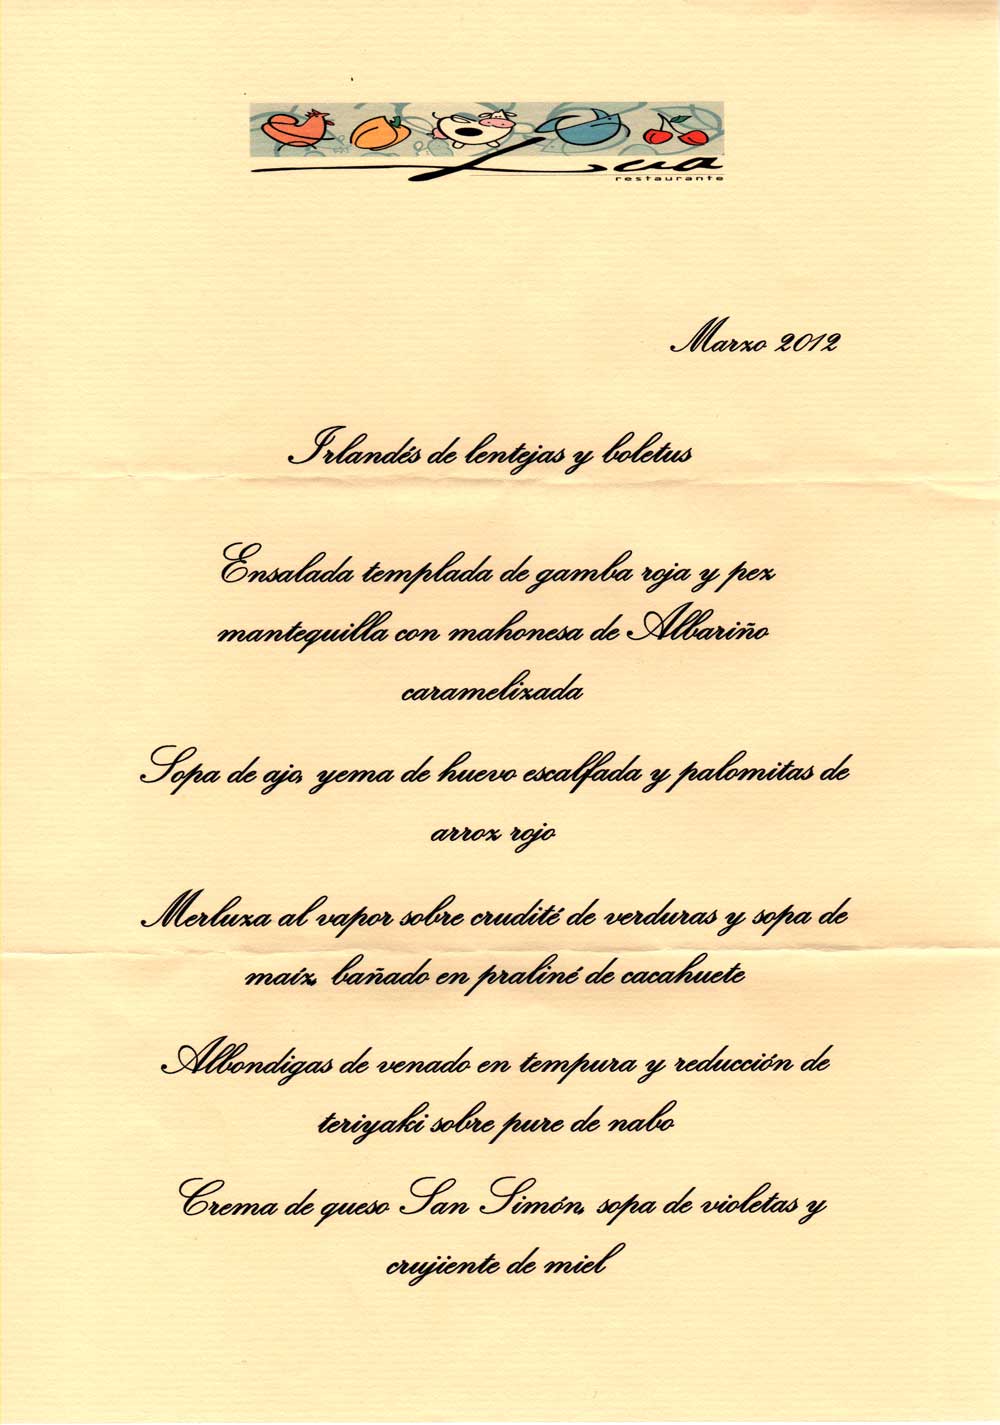 Lua
restaurante
Marzo 2012
Irlandés de lentejas y boletus
Ensalada templada de gamba roja y pez
mantequilla con mahonesa de Albariño
caramelizada
Sopa de ajo, yema de huevo escalfada y palomitas de
arroz rojo
Merluza al vapor sobre crudité de verduras y sopa de
maíz, bañado en praliné de cacahuete
Albondigas de venado en tempura y reducción de
teriyaki sobre pure de nabo
Crema de queso San Simón, sopa de violetas y
crujiente de miel